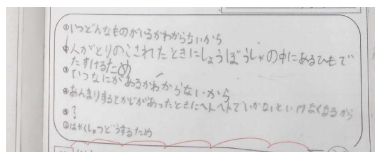 ①いつどんなものがいるかわからないから
②人がとりのこされたときにしょうぼうしゃの中にあるひもで
たすけるため
③いつなにがあるかわからないから
④あんまりするとかじがあったときに
いかないといけなくなるから
⑤↑
⑥はやくしゅつどうするため